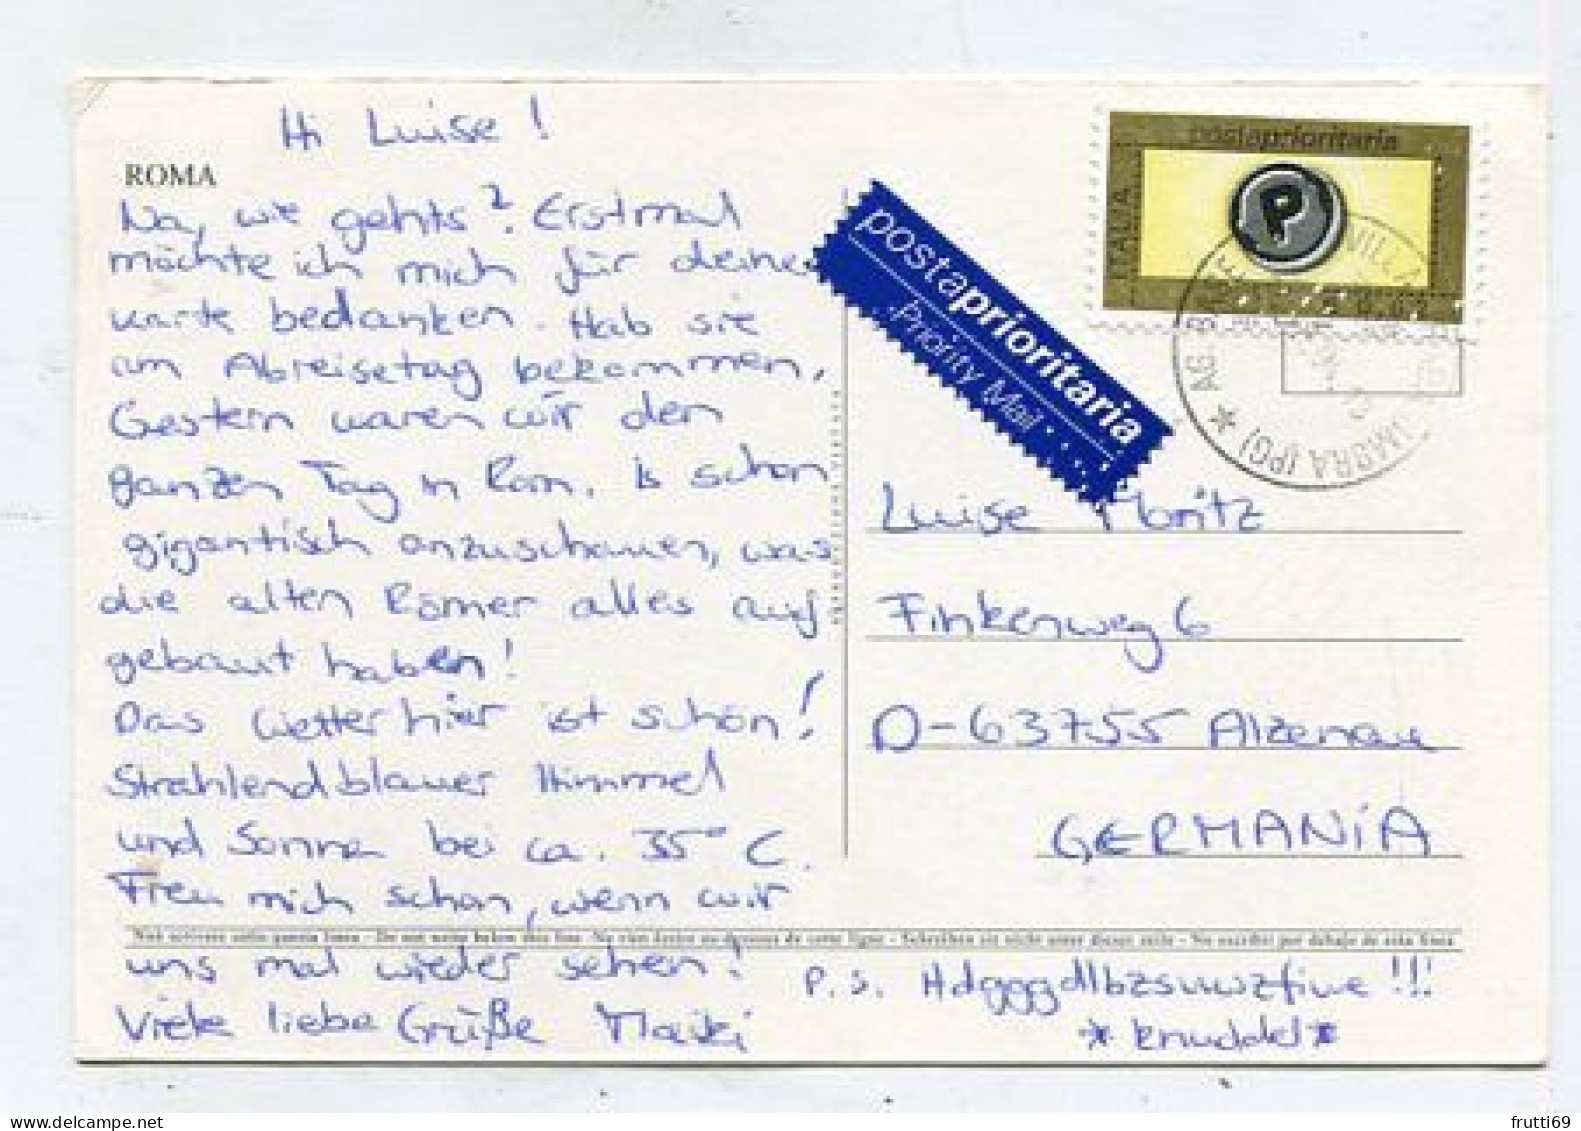 Hi Luise!
ROMA
Na, wie gehts? Erstmal
möchte ich mich für deine
Karte bedanken. Hab sie
am Abreisetag bekommen.
Gestern waren wir den
ganzen Tag in Rom. Is schon
gigantisch anzuschauen, was
die alten Römer alles auf
gebaut haben!
Das Wetter hier ist schön!
Strahlend blauer Himmel
und Sonne bei ca. 35° C.
Freu mich schon, wenn wir
uns mal wieder sehen!
Viele liebe Grüße Maiki
P.S. Hdgggdlbzsuwzfiue!!!
*knuddel*
postaprioritaria
ITALIA
P
postaprioritaria
Priority Mail
Luise Moritz
Finkenweg 6
D-63755 Alzenau
GERMANiA
Non scrivere sotto questa linea - Do not write below this line - Schreiben sie nicht unter dieser zeile - No escribir por debajo de esta linea
frutti69